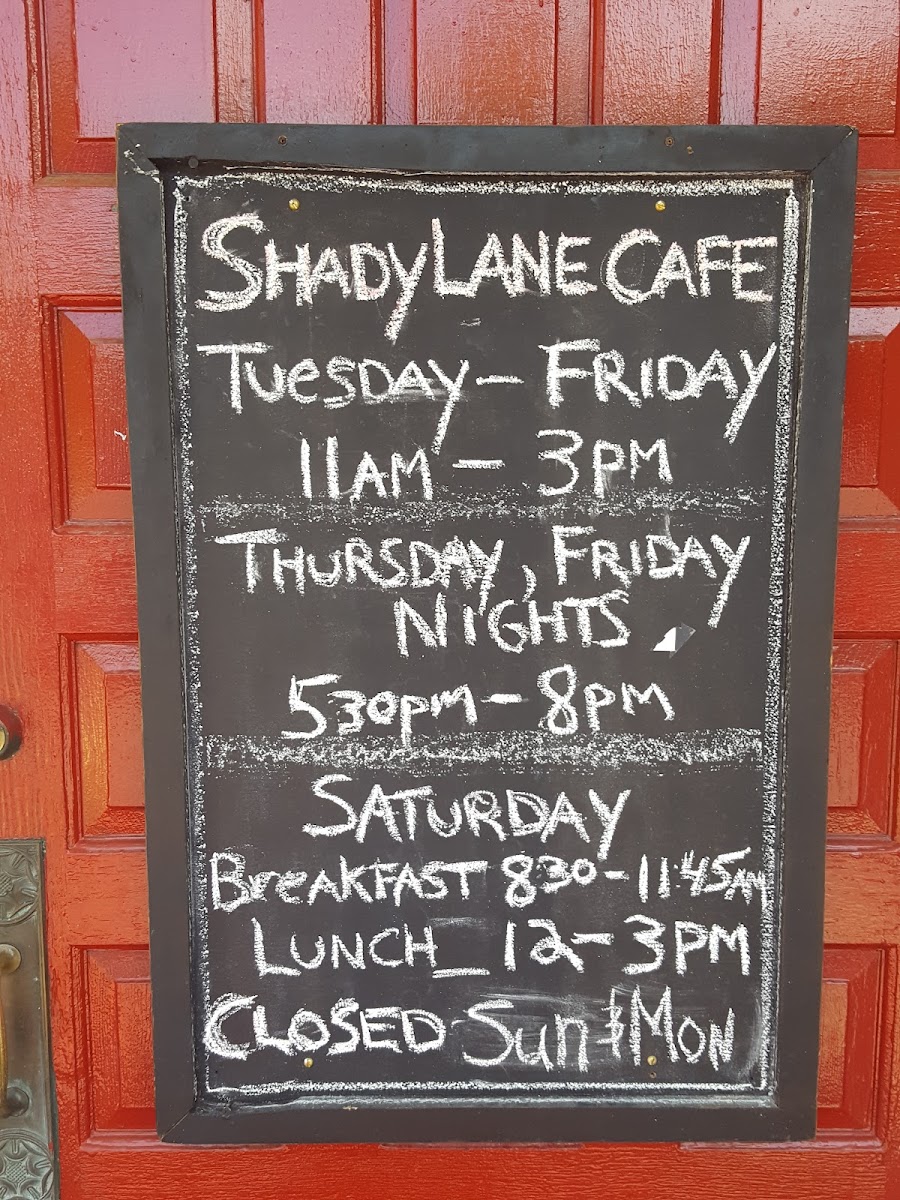 SHADY LANE CAFE
TUESDAY - FRIDAY
11AM - 3PM
THURSDAY, FRIDAY
NIGHTS
530PM - 8PM
SATURDAY
BREAKFAST 830 - 11:45AM
LUNCH_ 12 - 3PM
CLOSED Sun & MON